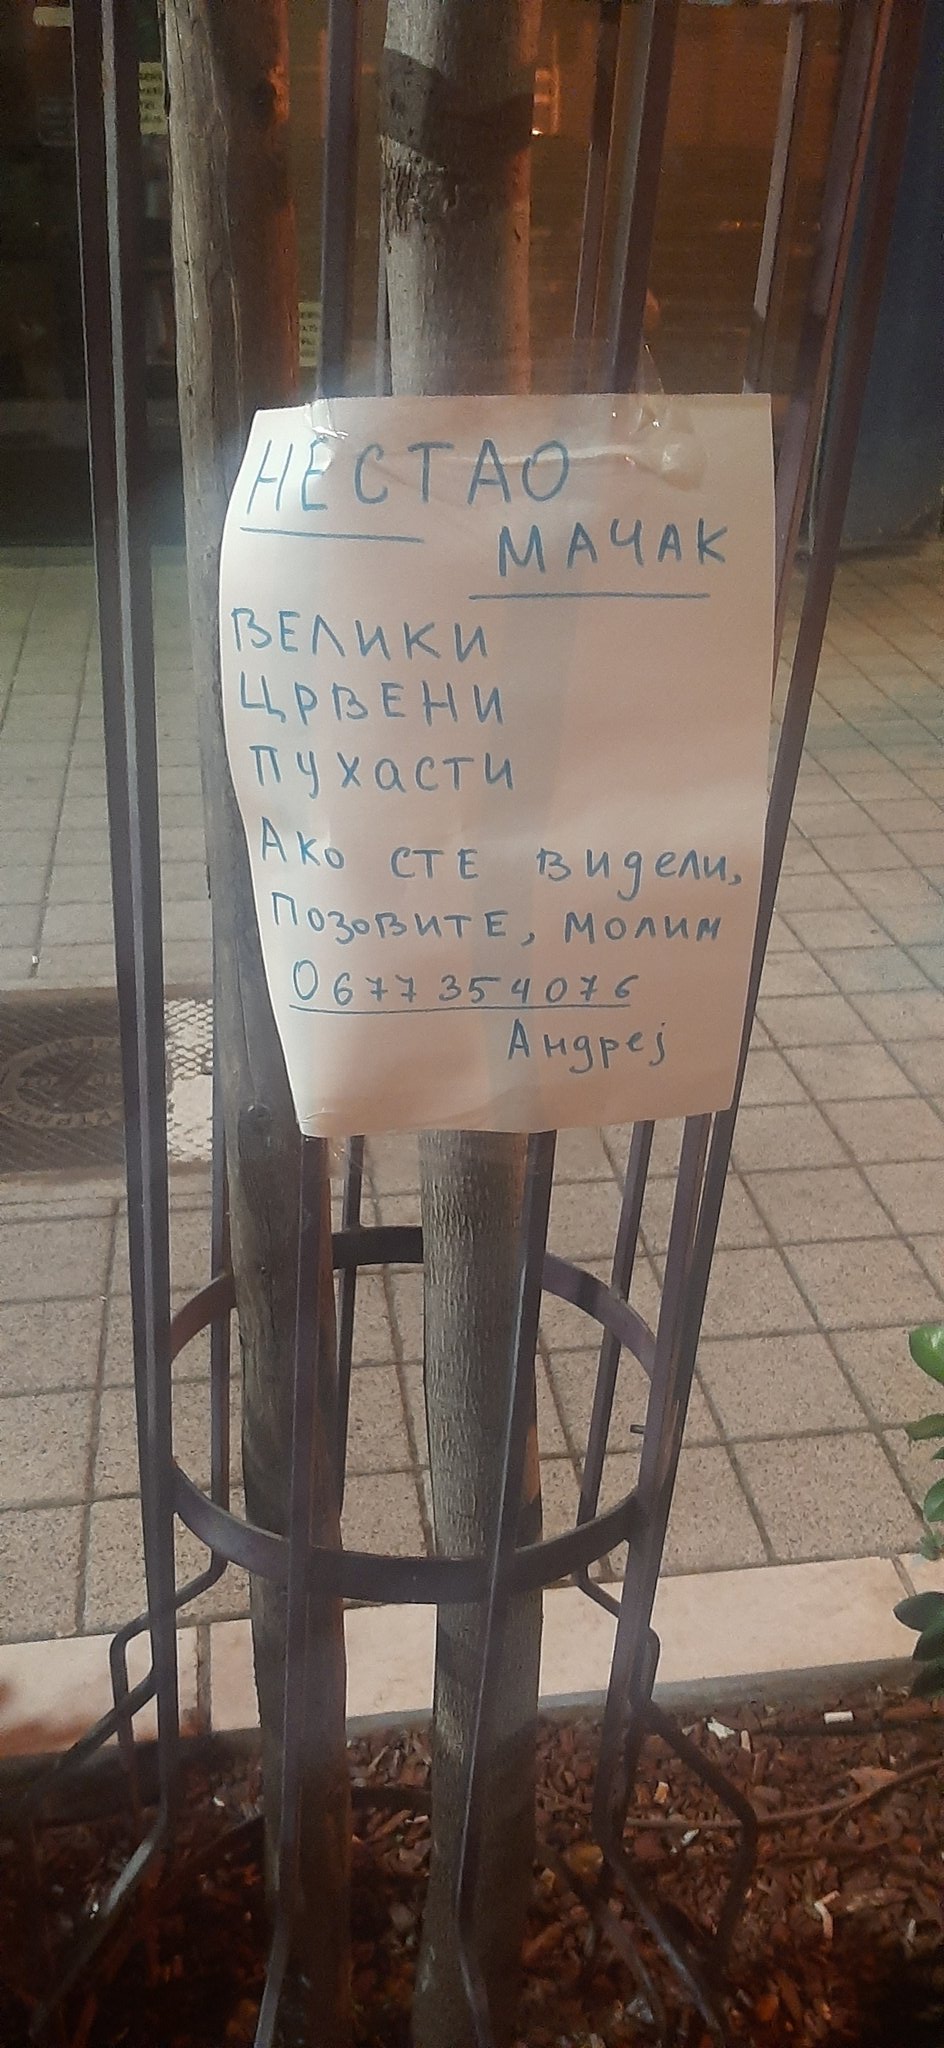 НЕСТАО
МАЧАК
ВЕЛИКИ
ЦРВЕНИ
ПУХАСТИ
Ако СТЕ видели,
Позовите, молим
0677354076
Андреј